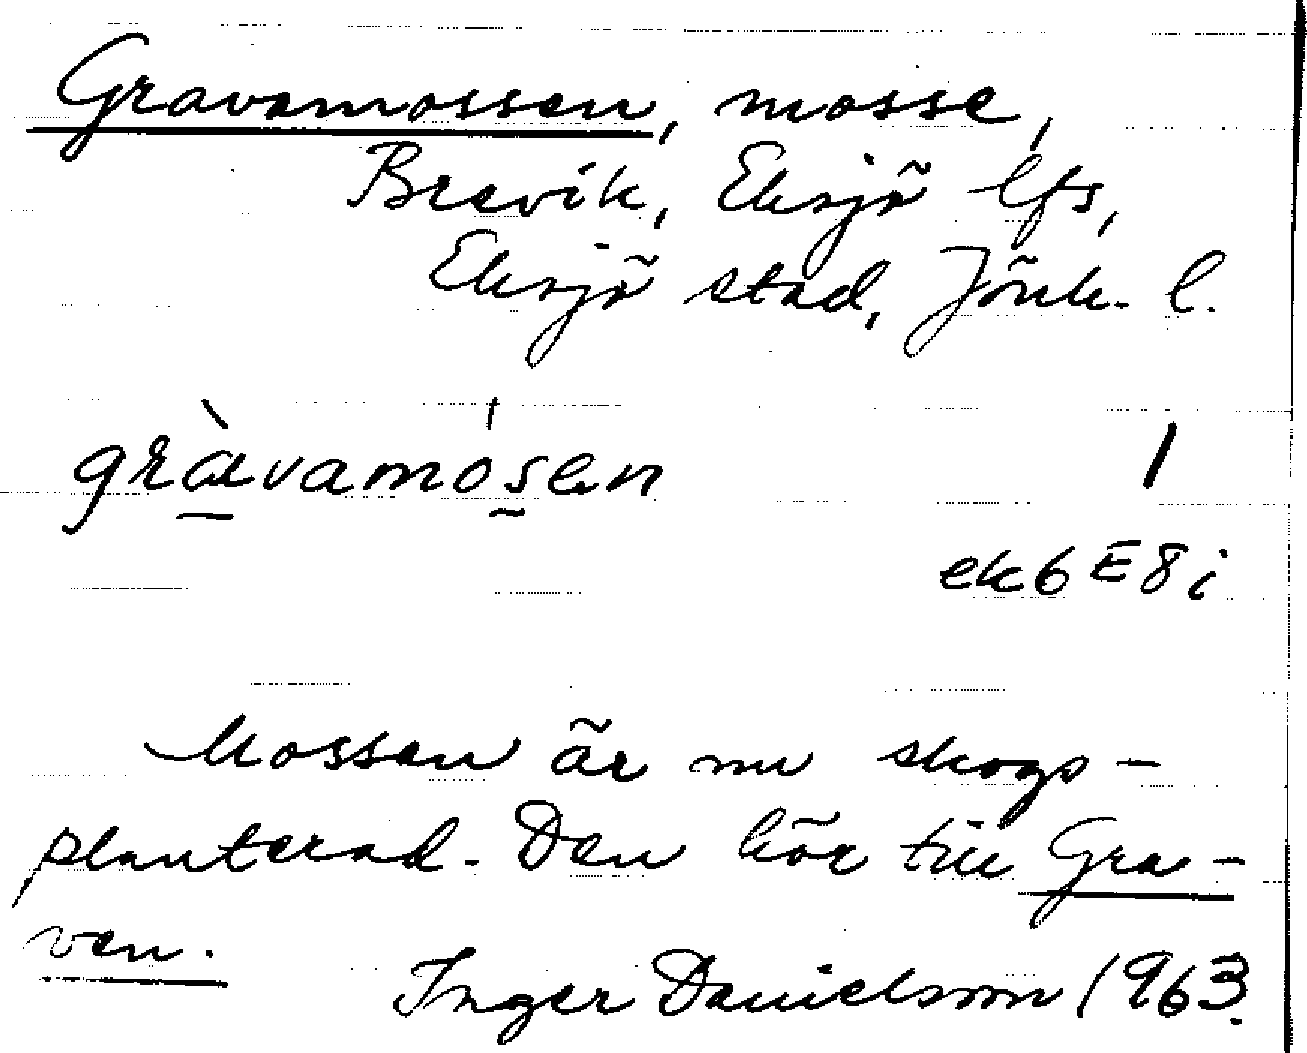 Gravamossen, mosse,
Brevik, Eksjö lfs,
Eksjö stad, Jönk. l.
gràvamósen
1
ek6E8i
Mossen är nu skogs-
planterad. Den hör till Gra-
ven.
Inger Danielsson 1963.